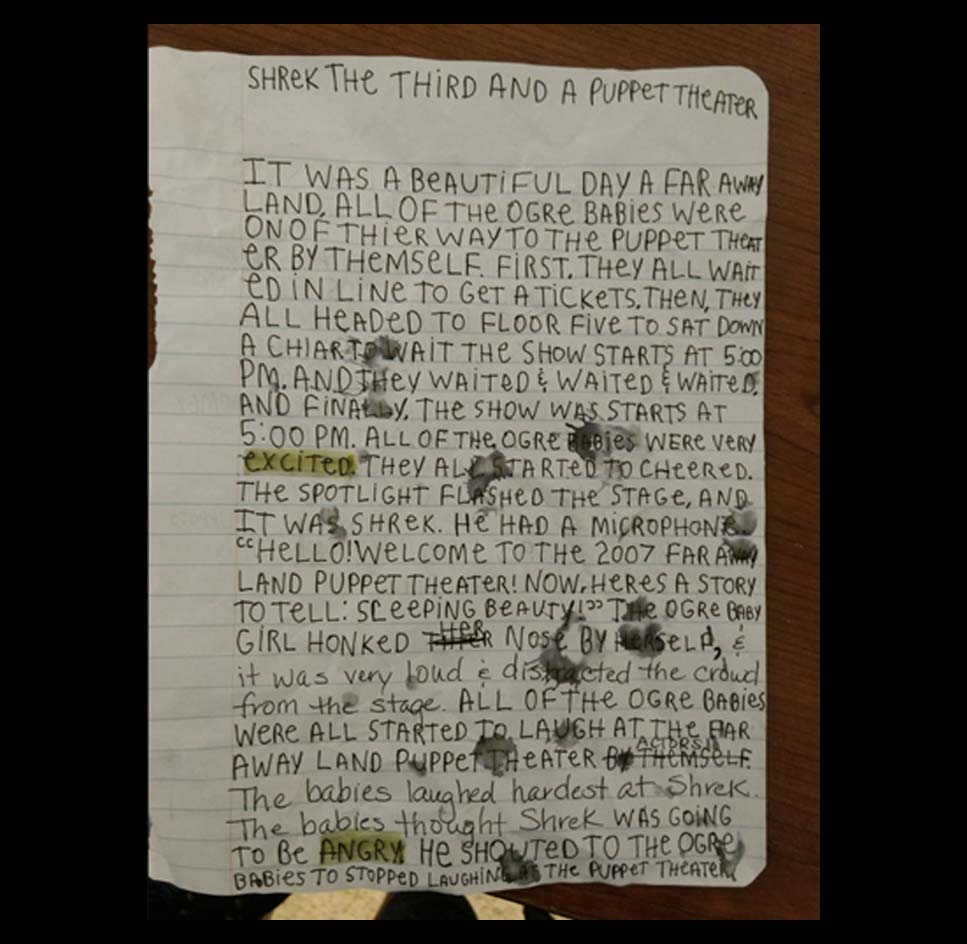 SHREK THE THIRD AND A PUPPET THEATER
IT WAS A BEAUTIFUL DAY A FAR AWAY
LAND, ALL OF THE OGRE BABIES WERE
ON OF THIER WAY TO THE PUPPET THEAT
ER BY THEMSELF. FIRST, THEY ALL WAIT
ED IN LINE TO GET A TICKETS. THEN, THEY
ALL HEADED TO FLOOR FIVE TO SAT DOWN
A CHIAR TO WAIT THE SHOW STARTS AT 5:00
PM. AND THEY WAITED & WAITED & WAITED.
AND FINALLY, THE SHOW WAS STARTS AT
5:00 PM. ALL OF THE OGRE BABIES WERE VERY
EXCITED. THEY ALL STARTED TO CHEERED.
THE SPOTLIGHT FLASHED THE STAGE, AND
IT WAS SHREK. HE HAD A MICROPHONE.
"HELLO! WELCOME TO THE 2007 FAR AWAY
LAND PUPPET THEATER! NOW, HERES A STORY
TO TELL: SLEEPING BEAUTY!" THE OGRE BABY
GIRL HONKED HER NOSE BY HERSELF, &
it was very loud & distracted the crowd
from the stage. ALL OF THE OGRE BABIES
WERE ALL STARTED TO LAUGH AT THE FAR
AWAY LAND PUPPET THEATER ACTORS!!
The babies laughed hardest at Shrek.
The babies thought Shrek WAS GOING
TO BE ANGRY. HE SHOUTED TO THE OGRE
BABIES TO STOPPED LAUGHING AT THE PUPPET THEATER.